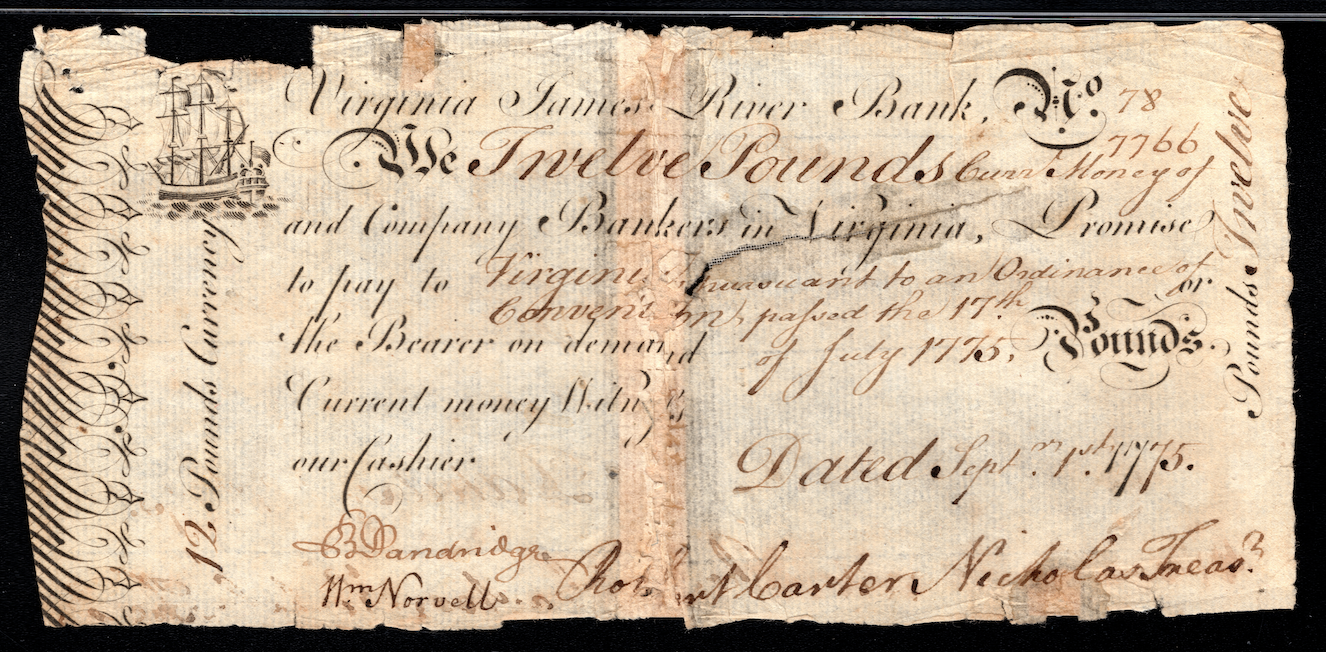 Virginia James River Bank, No. 78
7766
We Twelve Pounds Curr.t Money of
and Company Bankers in Virginia, Promise
to pay to Virginia pursuant to an Ordinance of
or
Convention, passed the 17th
the Bearer on demand of July 1775. Pounds.
Current money Witness
our Cashier
Dated Sept.r 1st, 1775.
B Dandridge
Wm Norvell Robert Carter Nicholas Treas.r
12 Pounds Currency
Pounds Twelve